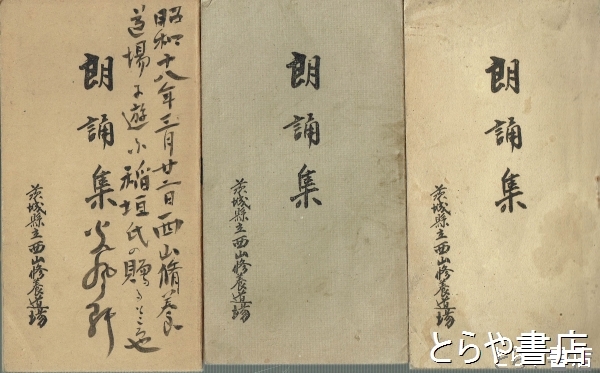 昭和十八年三月廿二日西山脩養
道場に遊ふ稲垣氏の贈る
朗誦集
茨城縣立西山修養道場
朗誦集
茨城縣立西山修養道場
朗誦集
茨城縣立西山修養道場
とらや書店